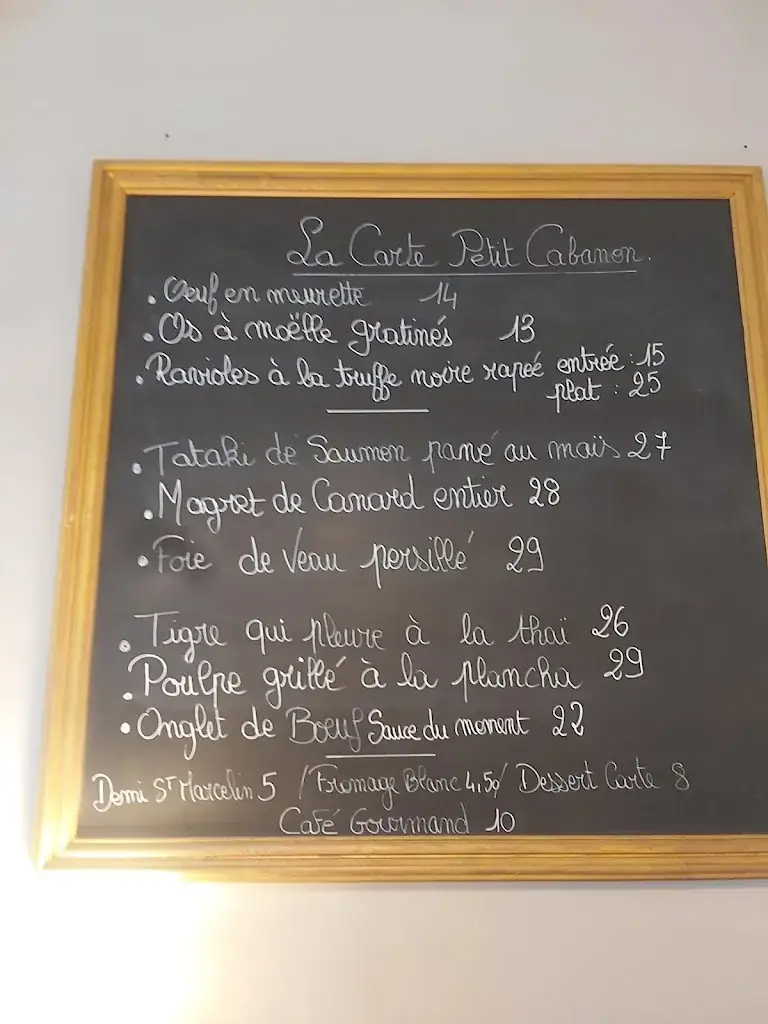 La Carte Petit Cabanon.
• Oeuf en meurette 14
• Os à moëlle gratinés 13
• Ravioles à la truffe noire rapée entrée : 15
plat : 25
• Tataki de Saumon pané au maïs 27
• Magret de Canard entier 28
• Foie de Veau persillé 29
• Tigre qui pleure à la thaï 26
• Poulpe grillé à la plancha 29
• Onglet de Boeuf Sauce du moment 22
Demi St Marcelin 5 / Fromage Blanc 4,50 / Dessert Carte 8
Café Gourmand 10